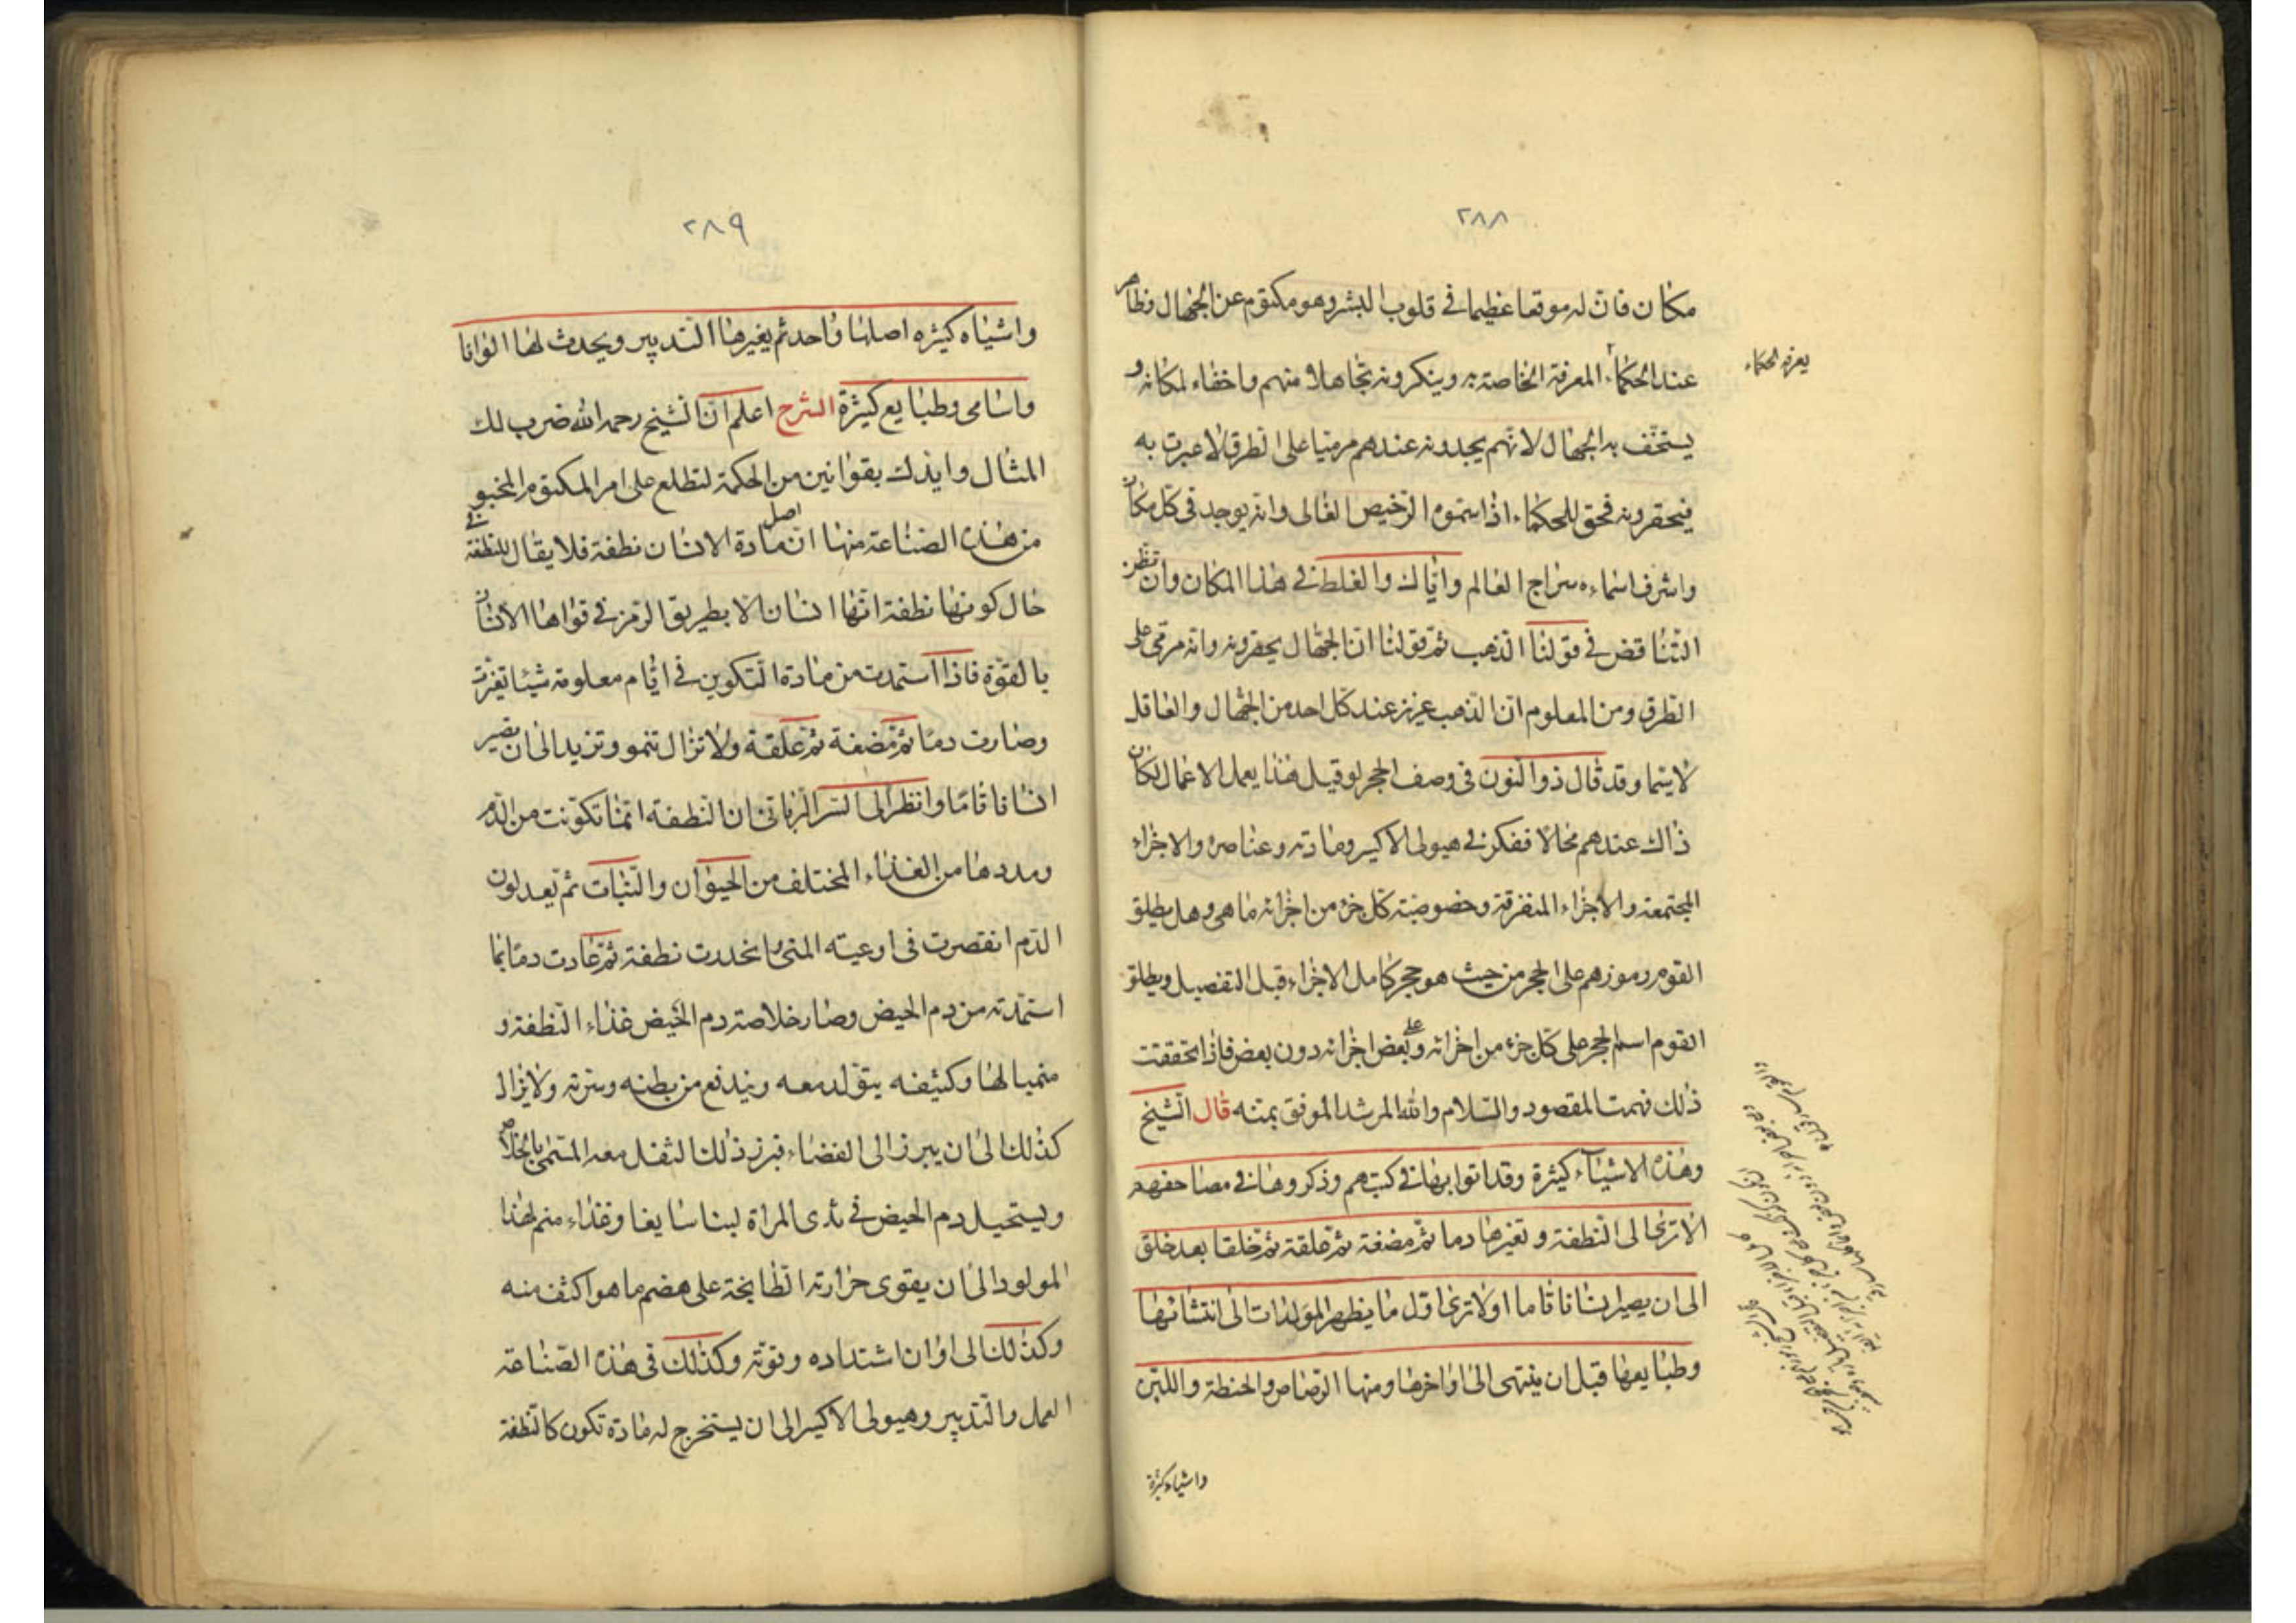 ٢٨٨
مكان فان له موقعا عظيما في قلوب البشر وهو مكتوم عن الجهال وظاهر
عند الحكماء المعرفة الخاصة به وينكرونه تجاهلا منهم واخفاء لمكانه و
يعرفه الحكماء
يستخف به الجهال لانهم يجدونه عندهم مرميا على الطرق لا عبرت به
فيحقرونه فحق للحكماء اذا سموه الرخيص الغالى وانه يوجد في كل مكان
واشرف اسماءه سراج العالم واياك والغلط في هذا المكان وان تظن
التناقض في قولنا الذهب ثم قولنا ان الجهال يحقرونه وانه مرمى على
الطرق ومن المعلوم ان الذهب عزيز عند كل احد من الجهال والعاقل
لا سيما وقد قال ذو النون في وصف الحجر لو قيل هذا يعمل الاعمال لكان
ذاك عندهم محالا ففكر في هيولى الاكسير ومادته وعناصره والاجزاء
المجتمعة والاجزاء المتفرقة وخصوصية كل جزء من اجزائه ما هي وهل يطلق
القوم رموزهم على الحجر من حيث هو حجر كامل الاجزاء قبل التفصيل ويطلق
القوم اسم الحجر على كل جزء من اجزائه وعلى بعض اجزائه دون بعض فاذا تحققت
ذلك فهمت المقصود والسلام والله المرشد الموفق بمنه قال الشيخ
وهذه الاشياء كثيرة وقد اتوا بها في كتبهم وذكروها في مصاحفهم
الا ترى الى النطفة وتغيرها دما ثم مضغة ثم علقة ثم خلقا بعد خلق
الى ان يصير انسانا قاما اولا ترى اول ما يظهر المولدات الى انتشائها
وطبايعها قبل ان ينتهى الى اواخرها ومنها الرصاص والحنطة واللبن
واشياء كثيرة
٢٨٩
واشياء كثيره اصلها واحد ثم يغيرها التدبير ويحدث لها الوانا
واسامى وطبايع كثيرة الشرح اعلم ان الشيخ رحمه الله ضرب لك
المثال وايدك بقوانين من الحكمة لتطلع على امر المكتوم المخبو
من هذه الصناعة منها ان اصل مادة الانسان نطفة فلا يقال للنطفة في
حال كونها نطفة انها انسان الا بطريق الرمز في قواها الانسان
بالقوة فاذا استمدت من مادة التكوين في ايام معلومة شيئا تغيرت
وصارت دما ثم مضغة ثم علقة ولا تزال تنمو وتزيد الى ان تصير
انسانا قاما وانظر الى السر الربانى ان النطفة انما تكونت من الدم
ومددها من الغذاء المختلف من الحيوان والنبات ثم تعد لون
الدم انقصرت في اوعيته المنى وانحدرت نطفة ثم عادت دما بما
استمدته من دم الحيض وصار خلاصة دم الحيض غذاء النطفة و
منميا لها وكثيفه يتولد معه ويندفع من بطنه وسرته ولا يزال
كذلك الى ان يبرز الى الفضاء فبرز ذلك الثفل معه المسمى بالخلاص
ويستحيل دم الحيض في ثدى المراة لبنا سايغا وغذاء منم لهذا
المولود الى ان يقوى حزارته الطابخة على هضم ما هو اكثف منه
وكذلك الى اوان اشتداده وقوته وكذلك في هذه الصناعة
العمل والتدبير وهيولى الاكسير الى ان يستخرج له مادة تكون كالنطفة